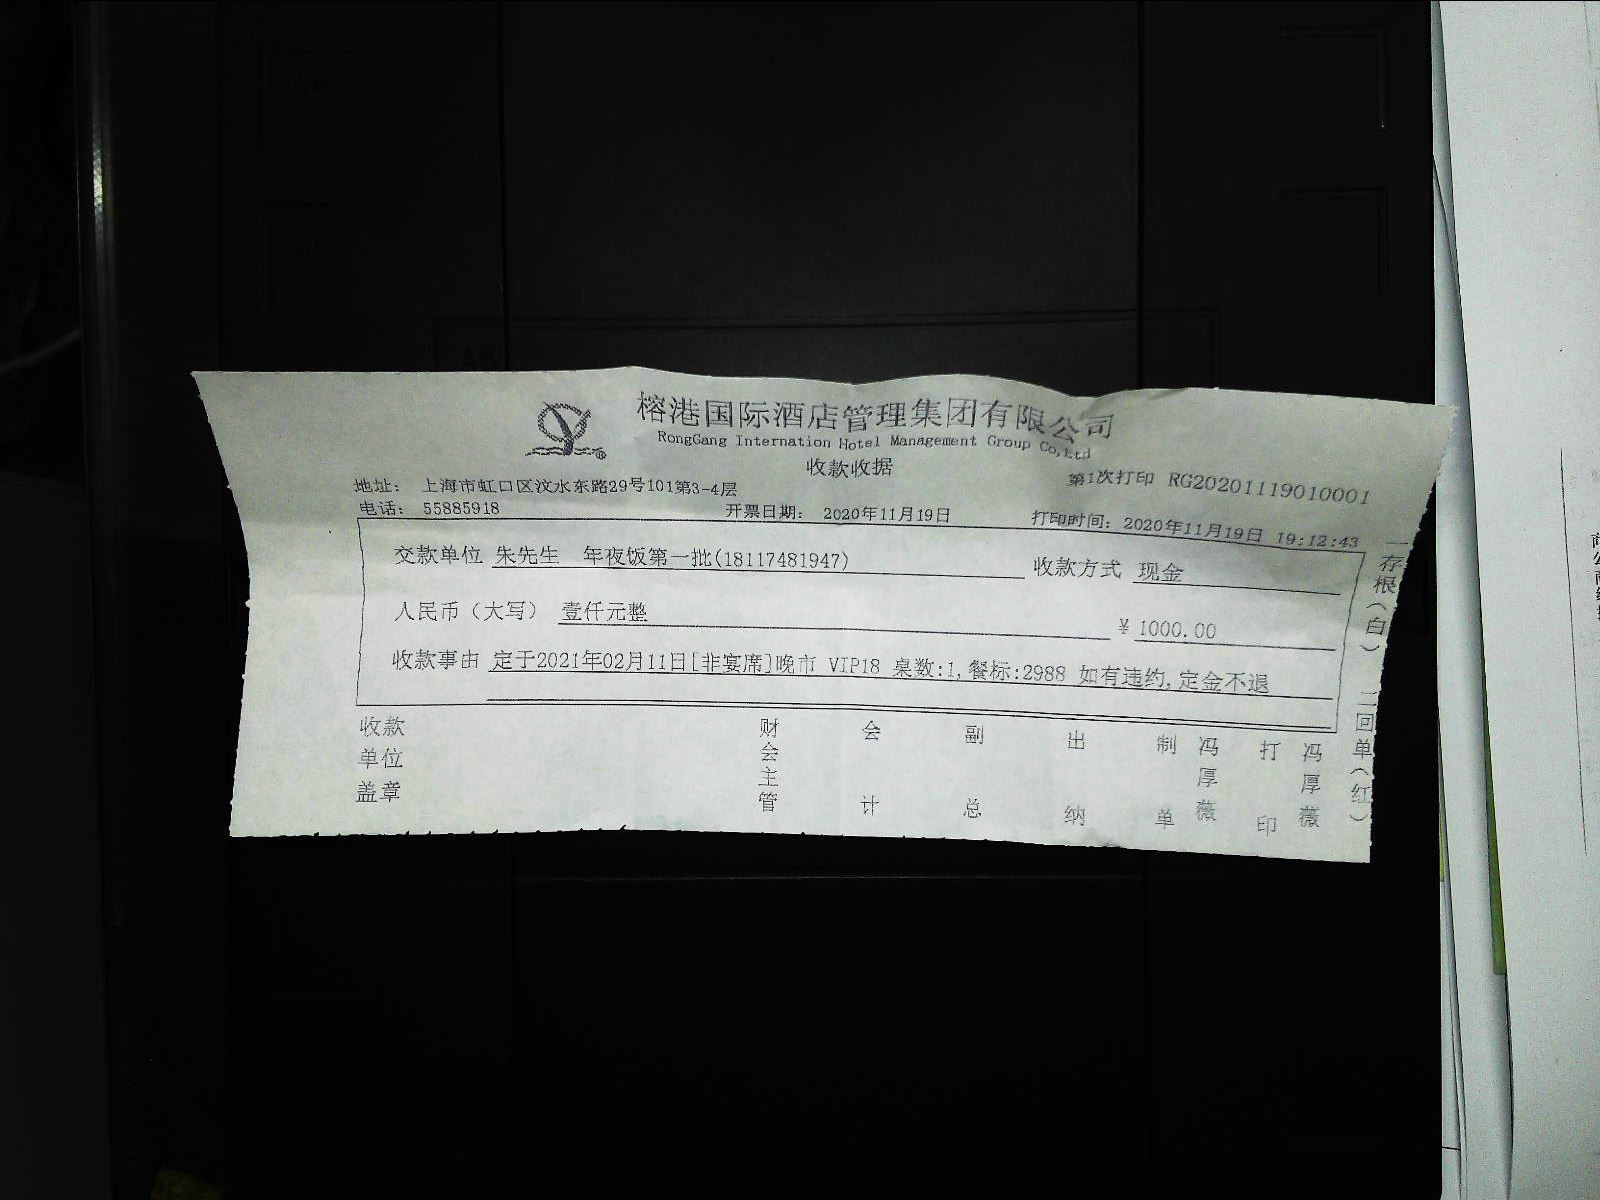 榕港国际酒店管理集团有限公司
RongGang Internation Hotel Management Group Co,Ltd
收款收据
第1次打印 RG20201119010001
地址： 上海市虹口区汶水东路29号101第3-4层
电话： 55885918 开票日期： 2020年11月19日 打印时间：2020年11月19日 19:12:43
交款单位 朱先生 年夜饭第一批(18117481947) 收款方式 现金
人民币（大写） 壹仟元整 ¥ 1000.00
收款事由 定于2021年02月11日[非宴席]晚市 VIP18 桌数:1,餐标:2988 如有违约,定金不退
一存根（白） 二回单（红）
收款单位盖章 财会主管 会计 副总 出纳 制单 冯厚薇 打印 冯厚薇
A5